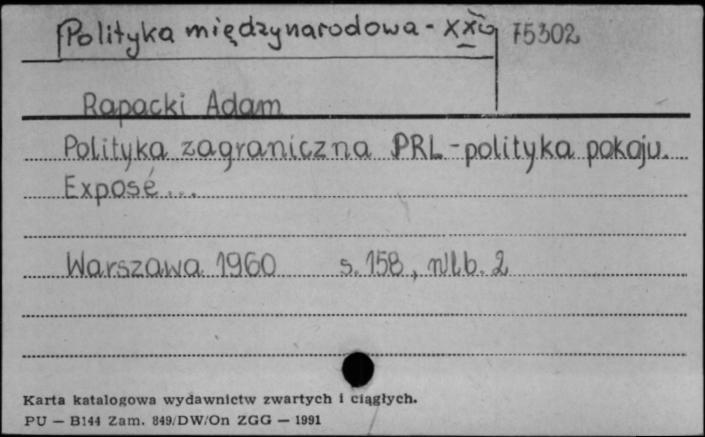 [Polityka międzynarodowa - XX w] 75302
Rapacki Adam
Polityka zagraniczna PRL - polityka pokoju.
Exposé...
Warszawa 1960 s. 158, nlb. 2
Karta katalogowa wydawnictw zwartych i ciągłych.
PU — B144 Zam. 849/DW/On ZGG — 1991